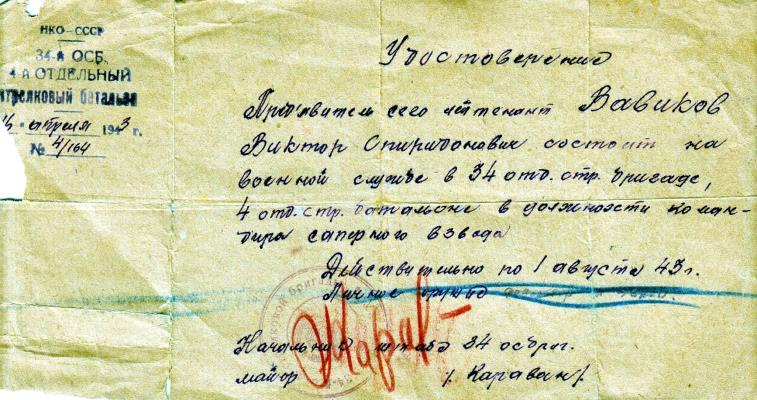 НКО-СССР
34-я ОСБ.
4-й ОТДЕЛЬНЫЙ
стрелковый батальон
апреля 1943 г.
№ 4/164
Удостоверение
Предъявитель сего лейтенант Вавиков
Виктор Спиридонович состоит на
военной службе в 34 отд. стр. бригаде,
4 отд. стр. батальоне в должности коман-
дира саперного взвода
Действительно по 1 августа 43 г.
Личное оружие
Начальник штаба 34 осбриг.
майор /Караван/.